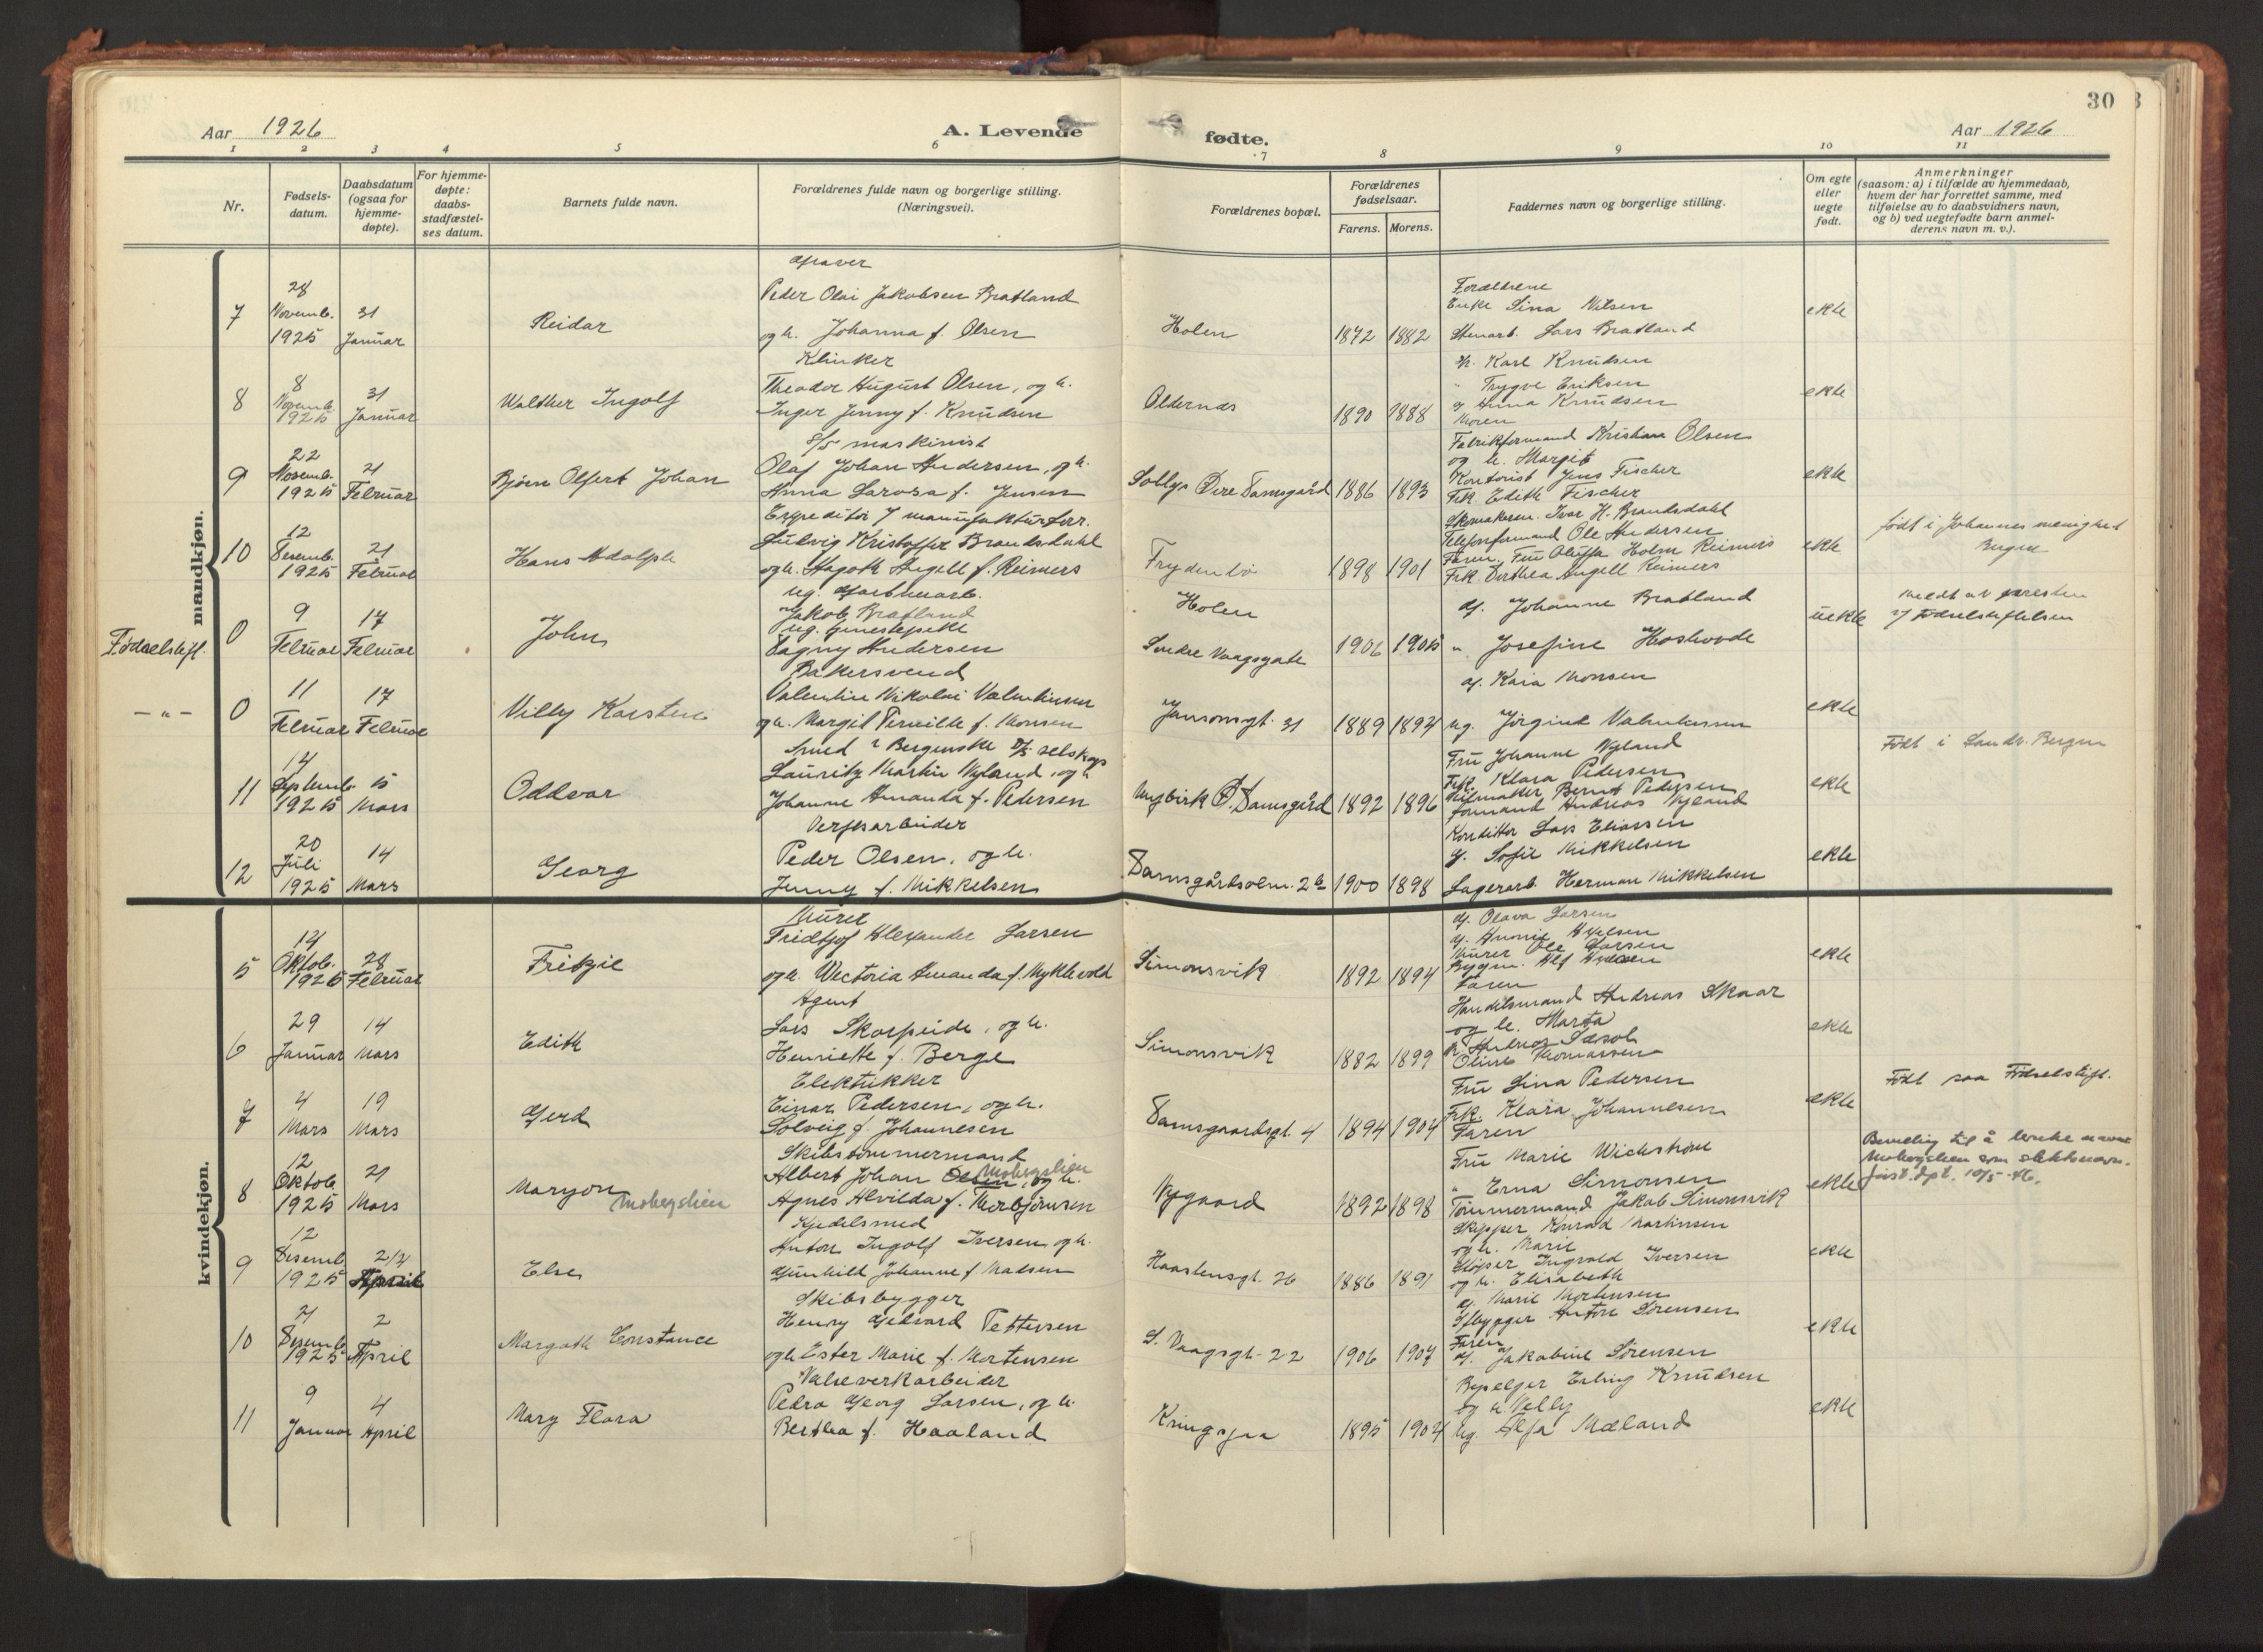 30
Aar 1926
A. Levende
fødte.
Aar 1926
1 2 3 4 5 6 7 8 9 10 11
Nr.
Fødsels-
datum.
Daabsdatum
(ogsaa for
hjemme-
døpte).
For hjemme-
døpte:
daabs-
stadfæstel-
ses datum.
Barnets fulde navn.
Forældrenes fulde navn og borgerlige stilling.
(Næringsvei).
Forældrenes bopæl.
Forældrenes
fødselsaar.
Farens. Morens.
Faddernes navn og borgerlige stilling.
Om egte
eller
uegte
født.
Anmerkninger
(saasom: a) i tilfælde av hjemmedaab,
hvem der har forrettet samme, med
tilføielse av to daabsvidners navn,
og b) ved uegtefødte barn anmel-
derens navn m. v.).
mandkjøn.
7
28
Novemb.
1925
31
Januar
Reidar
Peder Olai Jakobsen Bratland
og h. Johanna f. Olsen
Holen
1872 1882
Forældrene
Enke Sina Nilsen
Stenarb. Lars Bratland
ekte
8
8
Novemb.
1925
31
Januar
Walther Ingolf
Klinker
Theodor August Olsen, og h.
Inger Jenny f. Knudsen
Oldernes
1890 1888
Karl Knudsen
" Trygve Eriksen
Anna Knudsen
Moren
ekte
9
22
Novemb.
1925
21
Februar
Bjørn Olfert Johan
D/S maskinist
Olaf Johan Andersen, og h.
Anna Larosa f. Jensen
Solbyr Øvre Damsgård
1886 1893
Fabrikformand Kristian Olsen
og h. Margit
Kontorist Jens Fischer
Frk. Edith Fischer
ekte
10
12
Desemb.
1925
21
Februar
Hans Adolph
Expeditør i manufakturforr.
Ludvig Kristoffer Brandsdahl
og h. Hagoth Angell f. Reimers
Frydenbø
1898 1901
Skomakerm. Ivar H. Brandsdahl
Telefonformand Ole Andersen
Faren, Fru Oluffa Holm Reimers
Frk. Dorthea Angell Reimers
ekte
født i Johannes menighed
Bergen
Fødselstift.
0
9
Februar
17
Februar
John
Jakob Bratland
ug. tjenestepike
Dagny Andersen
Holen
Søndre Vaagsgate
1906 1905
g. Johanne Bratland
" Josefine Hashovde
uekte
meldt av presten
v/ Fødselstiftelsen
— " —
0
11
Februar
17
Februar
Willy Karsten
Bakersvend
Valentin Nikolai Valentinsen
og h. Margit Pernille f. Monsen
Jansonsgt. 31
1889 1894
g. Kaia Monsen
ug. Jørgine Valentinsen
ekte
11
14
Septemb.
1925
5
Mars
Oddvar
Smed i Bergenske D/S selskap
Lauritz Martin Nyland, og h
Johanne Amanda f. Pedersen
Nybirk Ø. Damsgård
1892 1896
Fru Johanne Nyland
Frk. Klara Pedersen
Seilmaker Bernt Pedersen
formand Andreas Nyland
ekte
Født i Landk. Bergen
12
20
Juli
1925
14
Mars
Georg
Verftsarbeider
Peder Olsen, og h.
Jenny f. Mikkelsen
Damsgårdsalm. 26
1900 1898
Konditor Lars Eliassen
g. Sofie Mikkelsen
Lagerarb. Herman Mikkelsen
ekte
kvindekjøn.
5
14
Oktob.
1925
28
Februar
Fritzie
Murer
Fridtjof Alexander Larsen
og h. Wictoria Amanda f. Myklevold
Simonsvik
1892 1894
g. Olava Larsen
Murer Ole Larsen
Faren
ekte
6
29
Januar
14
Mars
Edith
Agent
Lars Skarpeide, og h.
Henriette f. Berge
Simonsvik
1882 1899
Handelsmand Andreas Skaar
og h. Marta
Oline Thomassen
ekte
7
4
Mars
19
Mars
Gerd
Elektrikker
Einar Pedersen, og h.
Solveig f. Johannesen
Damsgaardsgt. 4
1894 1904
Fru Lina Pedersen
Frk. Klara Johannesen
Faren
ekte
Født paa Fødselstift.
8
12
Oktob.
1925
21
Mars
Maryon
Mobergslien
Skibstømmermand
Albert Johan Olsen Mobergslien, og h.
Agnes Alvilda f. Thorbjørnsen
Nygaard
1892 1898
Fru Marie Wickstrøm
" Erna Simonsen
Tømmermand Jakob Simonsvik
ekte
Bevilling til å bruke navnet
Mobergslien som slektsnavn.
Just.dpt. 10/5-46.
9
12
Desemb
1925
2/4
April
Else
Kjedelsmed
Anton Ingolf Iversen og h.
Gunhild Johanne f. Madsen
Haastensgt. 26
1886 1891
Skipper Konrad Martinsen
og h. Marie
Ingvald Iversen
og h. Elisabeth
ekte
10
21
Desemb
1925
2
April
Margoth Constance
Skibsbygger
Henry Gedvard Pettersen
og h Ester Marie f. Mortensen
S. Vaagsgt. 22
1906 1907
g. Marie Mortensen
Anton Sørensen
Faren
g. Jakobine Sørensen
ekte
11
9
Januar
4
April
Mary Flora
Valseverkarbeider
Pedro Georg Larsen, og h.
Berthea f. Haaland
Kringsjaa
1895 1904
Erling Knudsen
og h. Nelly
ug. Alfa Mæland
ekte